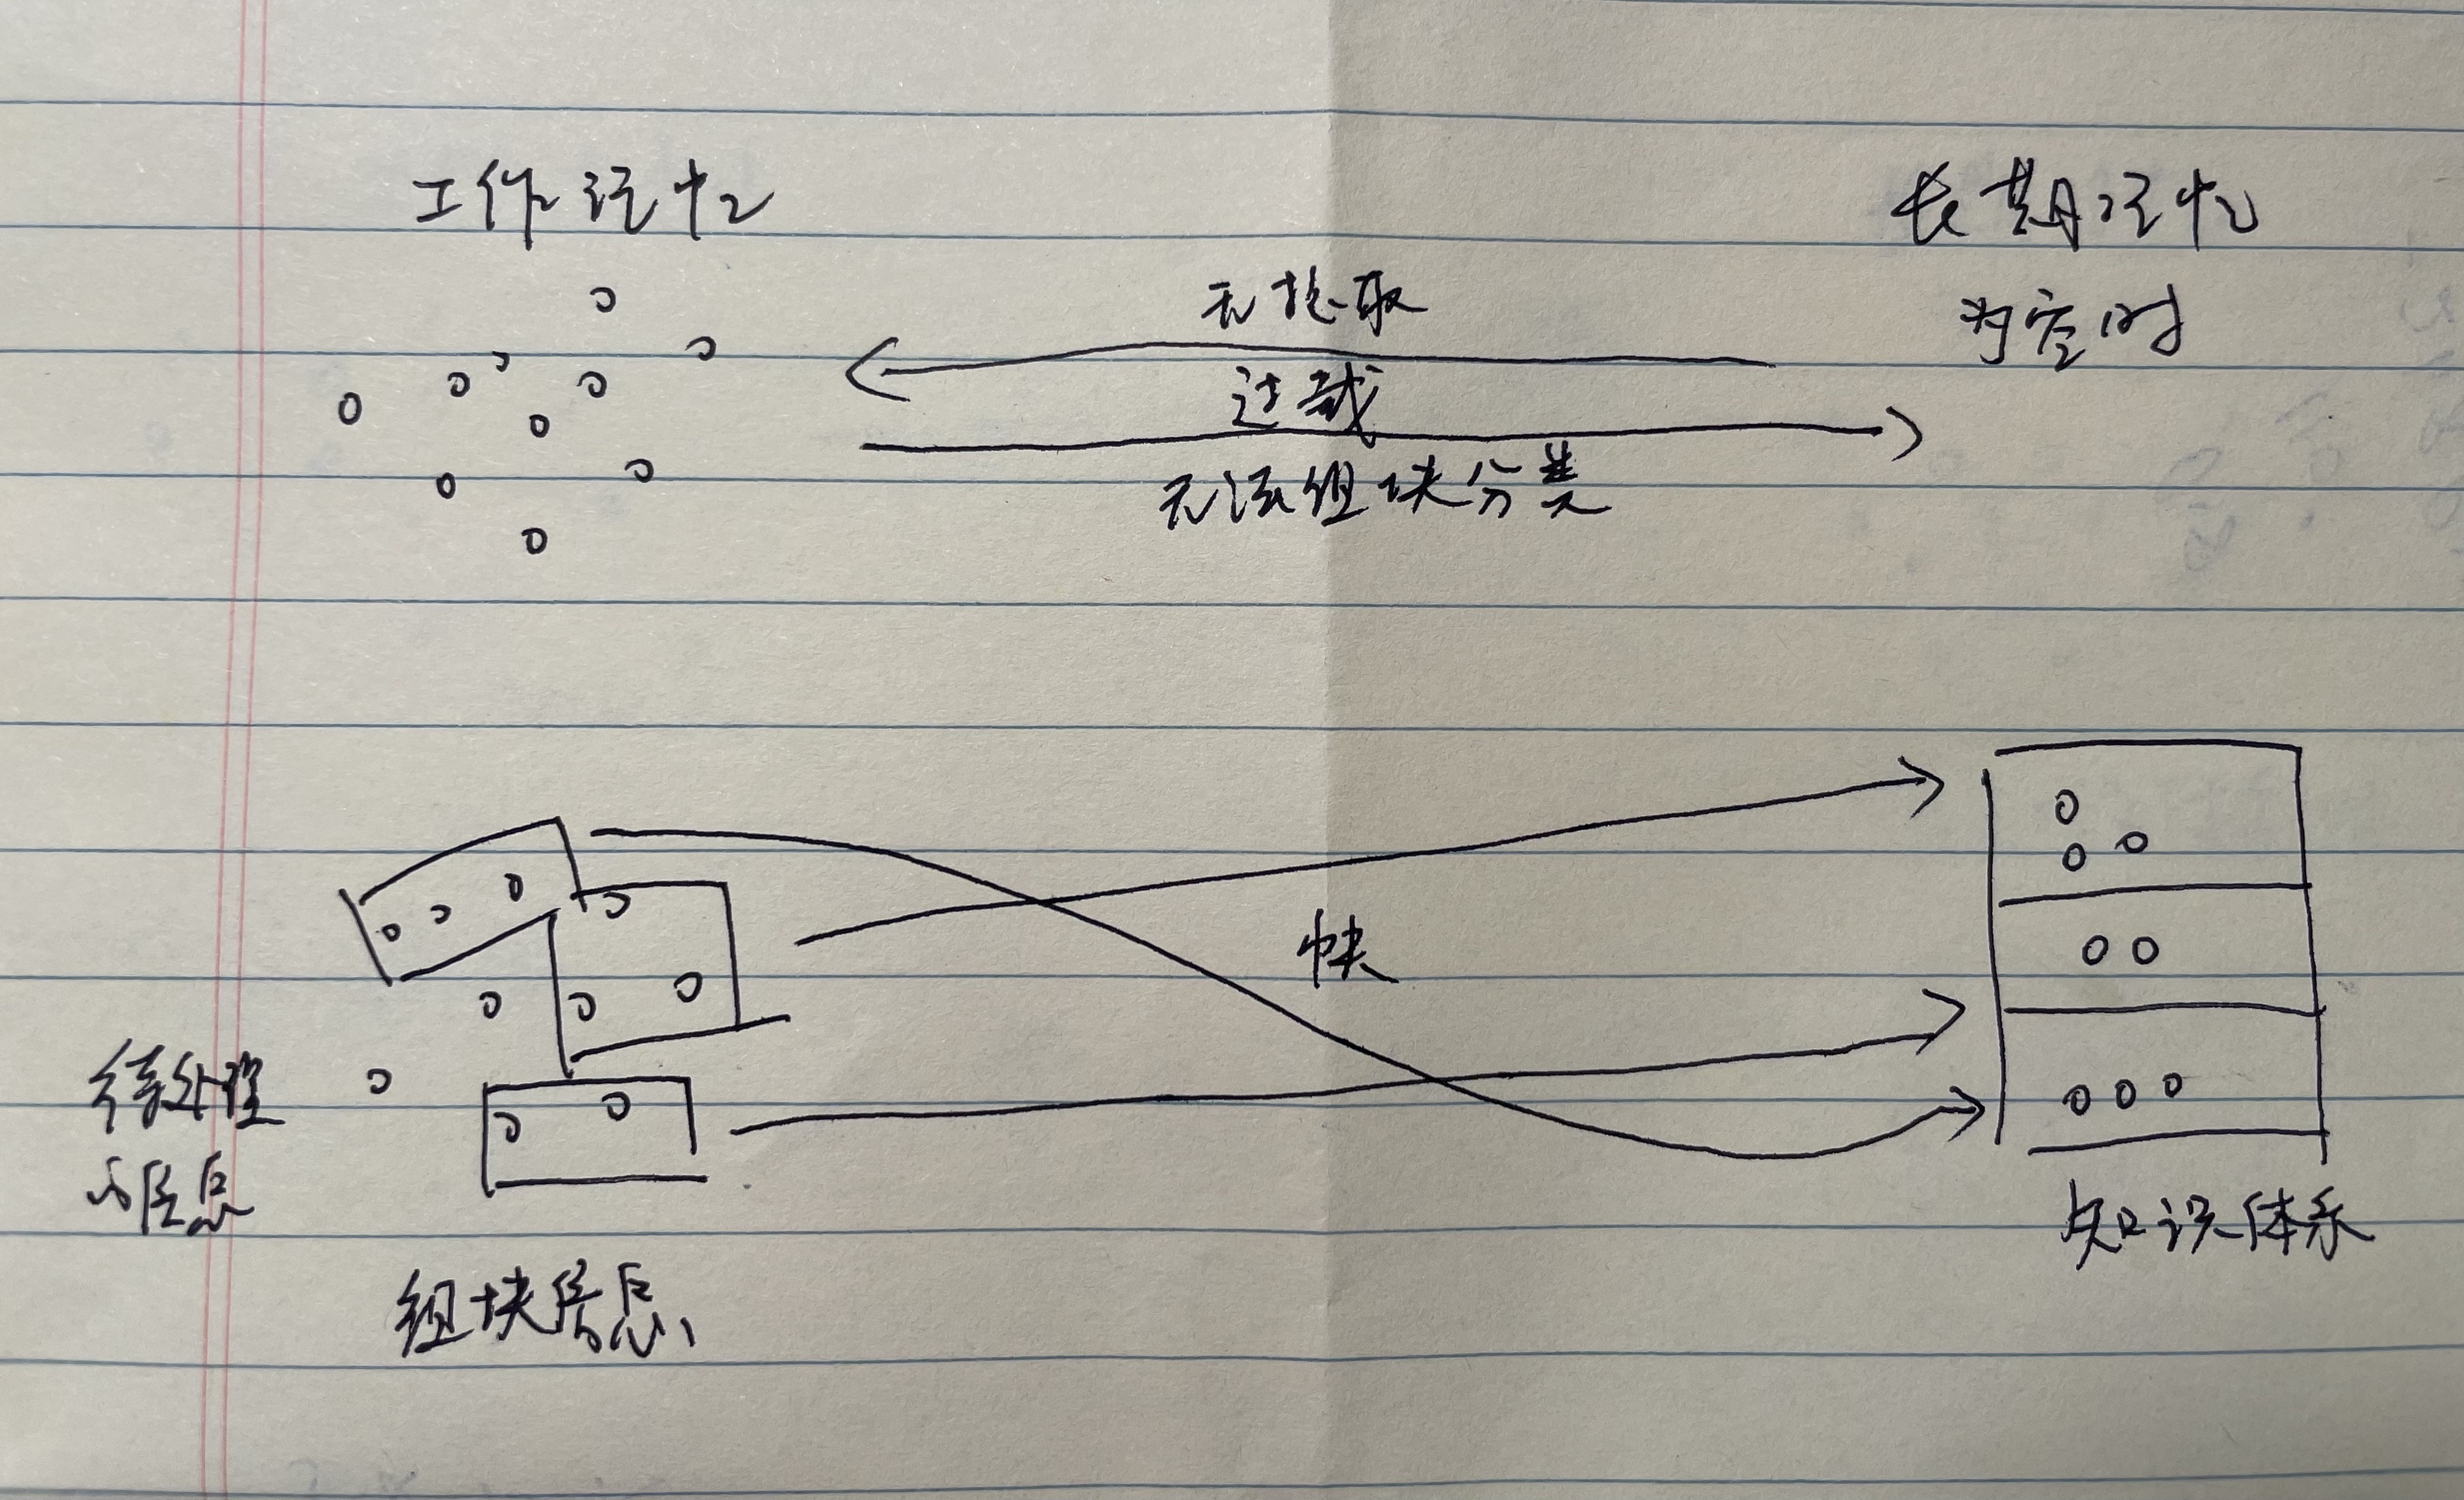 工作记忆
长期记忆
为空时
无提取
过载
无法组块分类
快
待处理
小信息
组块信息
知识体系